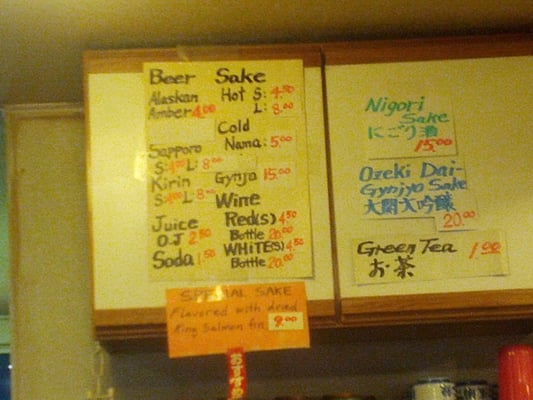 Beer
Alaskan
Amber 4.00
Sapporo
S: 4.00 L: 8.00
Kirin
S: 4.00 L: 8.00
Juice
OJ 2.50
Soda 1.50
Sake
Hot S: 4.50
L: 8.00
Cold
Nama: 5.00
Gynjo 15.00
Wine
Red(s) 4.50
Bottle 20.00
WHiTE(s) 4.50
Bottle 20.00
SPECIAL SAKE
Flavored with dried
King Salmon fin 9.00
おすすめ
Nigori
Sake
にごり酒
15.00
Ozeki Dai-
Gynjyo Sake
大関大吟醸
20.00
Green Tea 1.00
お茶